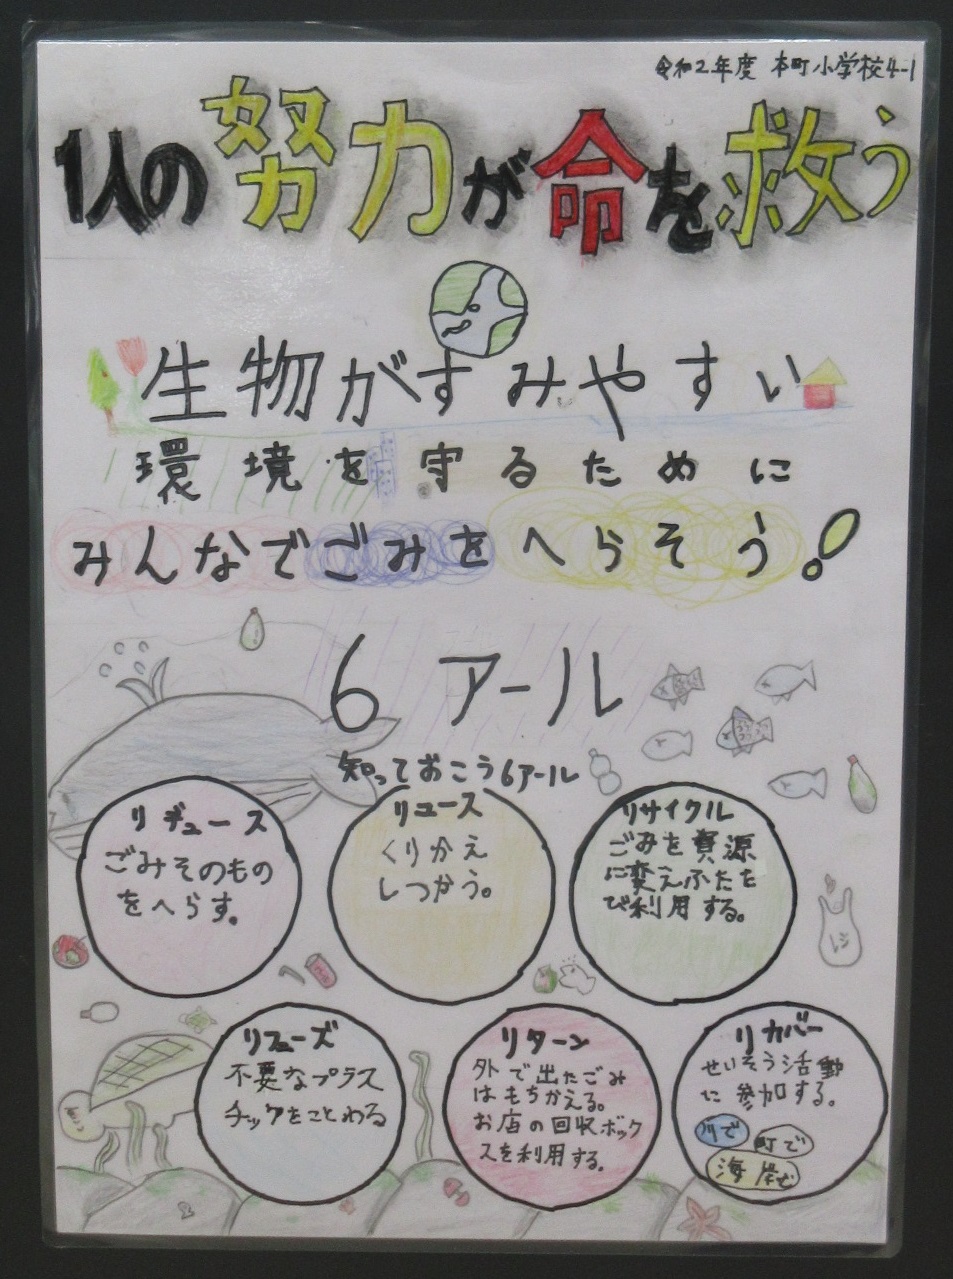 令和2年度 本町小学校4-1
1人の努力が命を救う
生物がすみやすい
環境を守るために
みんなでごみをへらそう!
6アール
知っておこう6アール
リデュース
ごみそのもの
をへらす。
リユース
くりかえ
しつかう。
リサイクル
ごみを資源
に変えふたた
び利用する。
レジ
リフューズ
不要なプラス
チックをことわる
リターン
外で出たごみ
はもちかえる。
お店の回収ボック
スを利用する。
リカバー
せいそう活動
に参加する。
川で
町で
海岸で